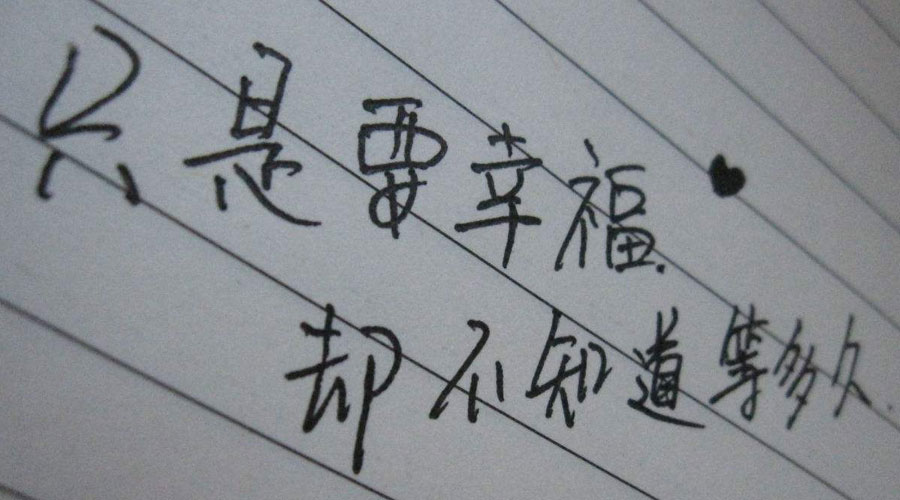 只是要幸福.
却不知道等多久.